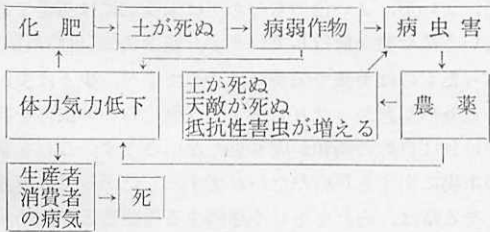 化肥
土が死ぬ
病弱作物
病虫害
体力気力低下
土が死ぬ
天敵が死ぬ
抵抗性害虫が増える
農薬
生産者
消費者
の病気
死